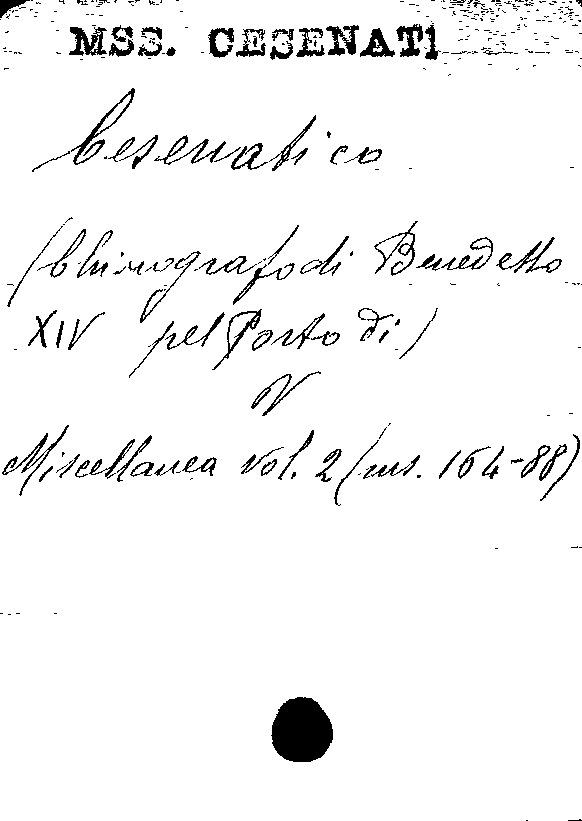 MSS. CESENATI
Cesenatico
(Chirografo di Benedetto
XIV pel Porto di)
V
Miscellanea vol. 2 (ms. 164-88)